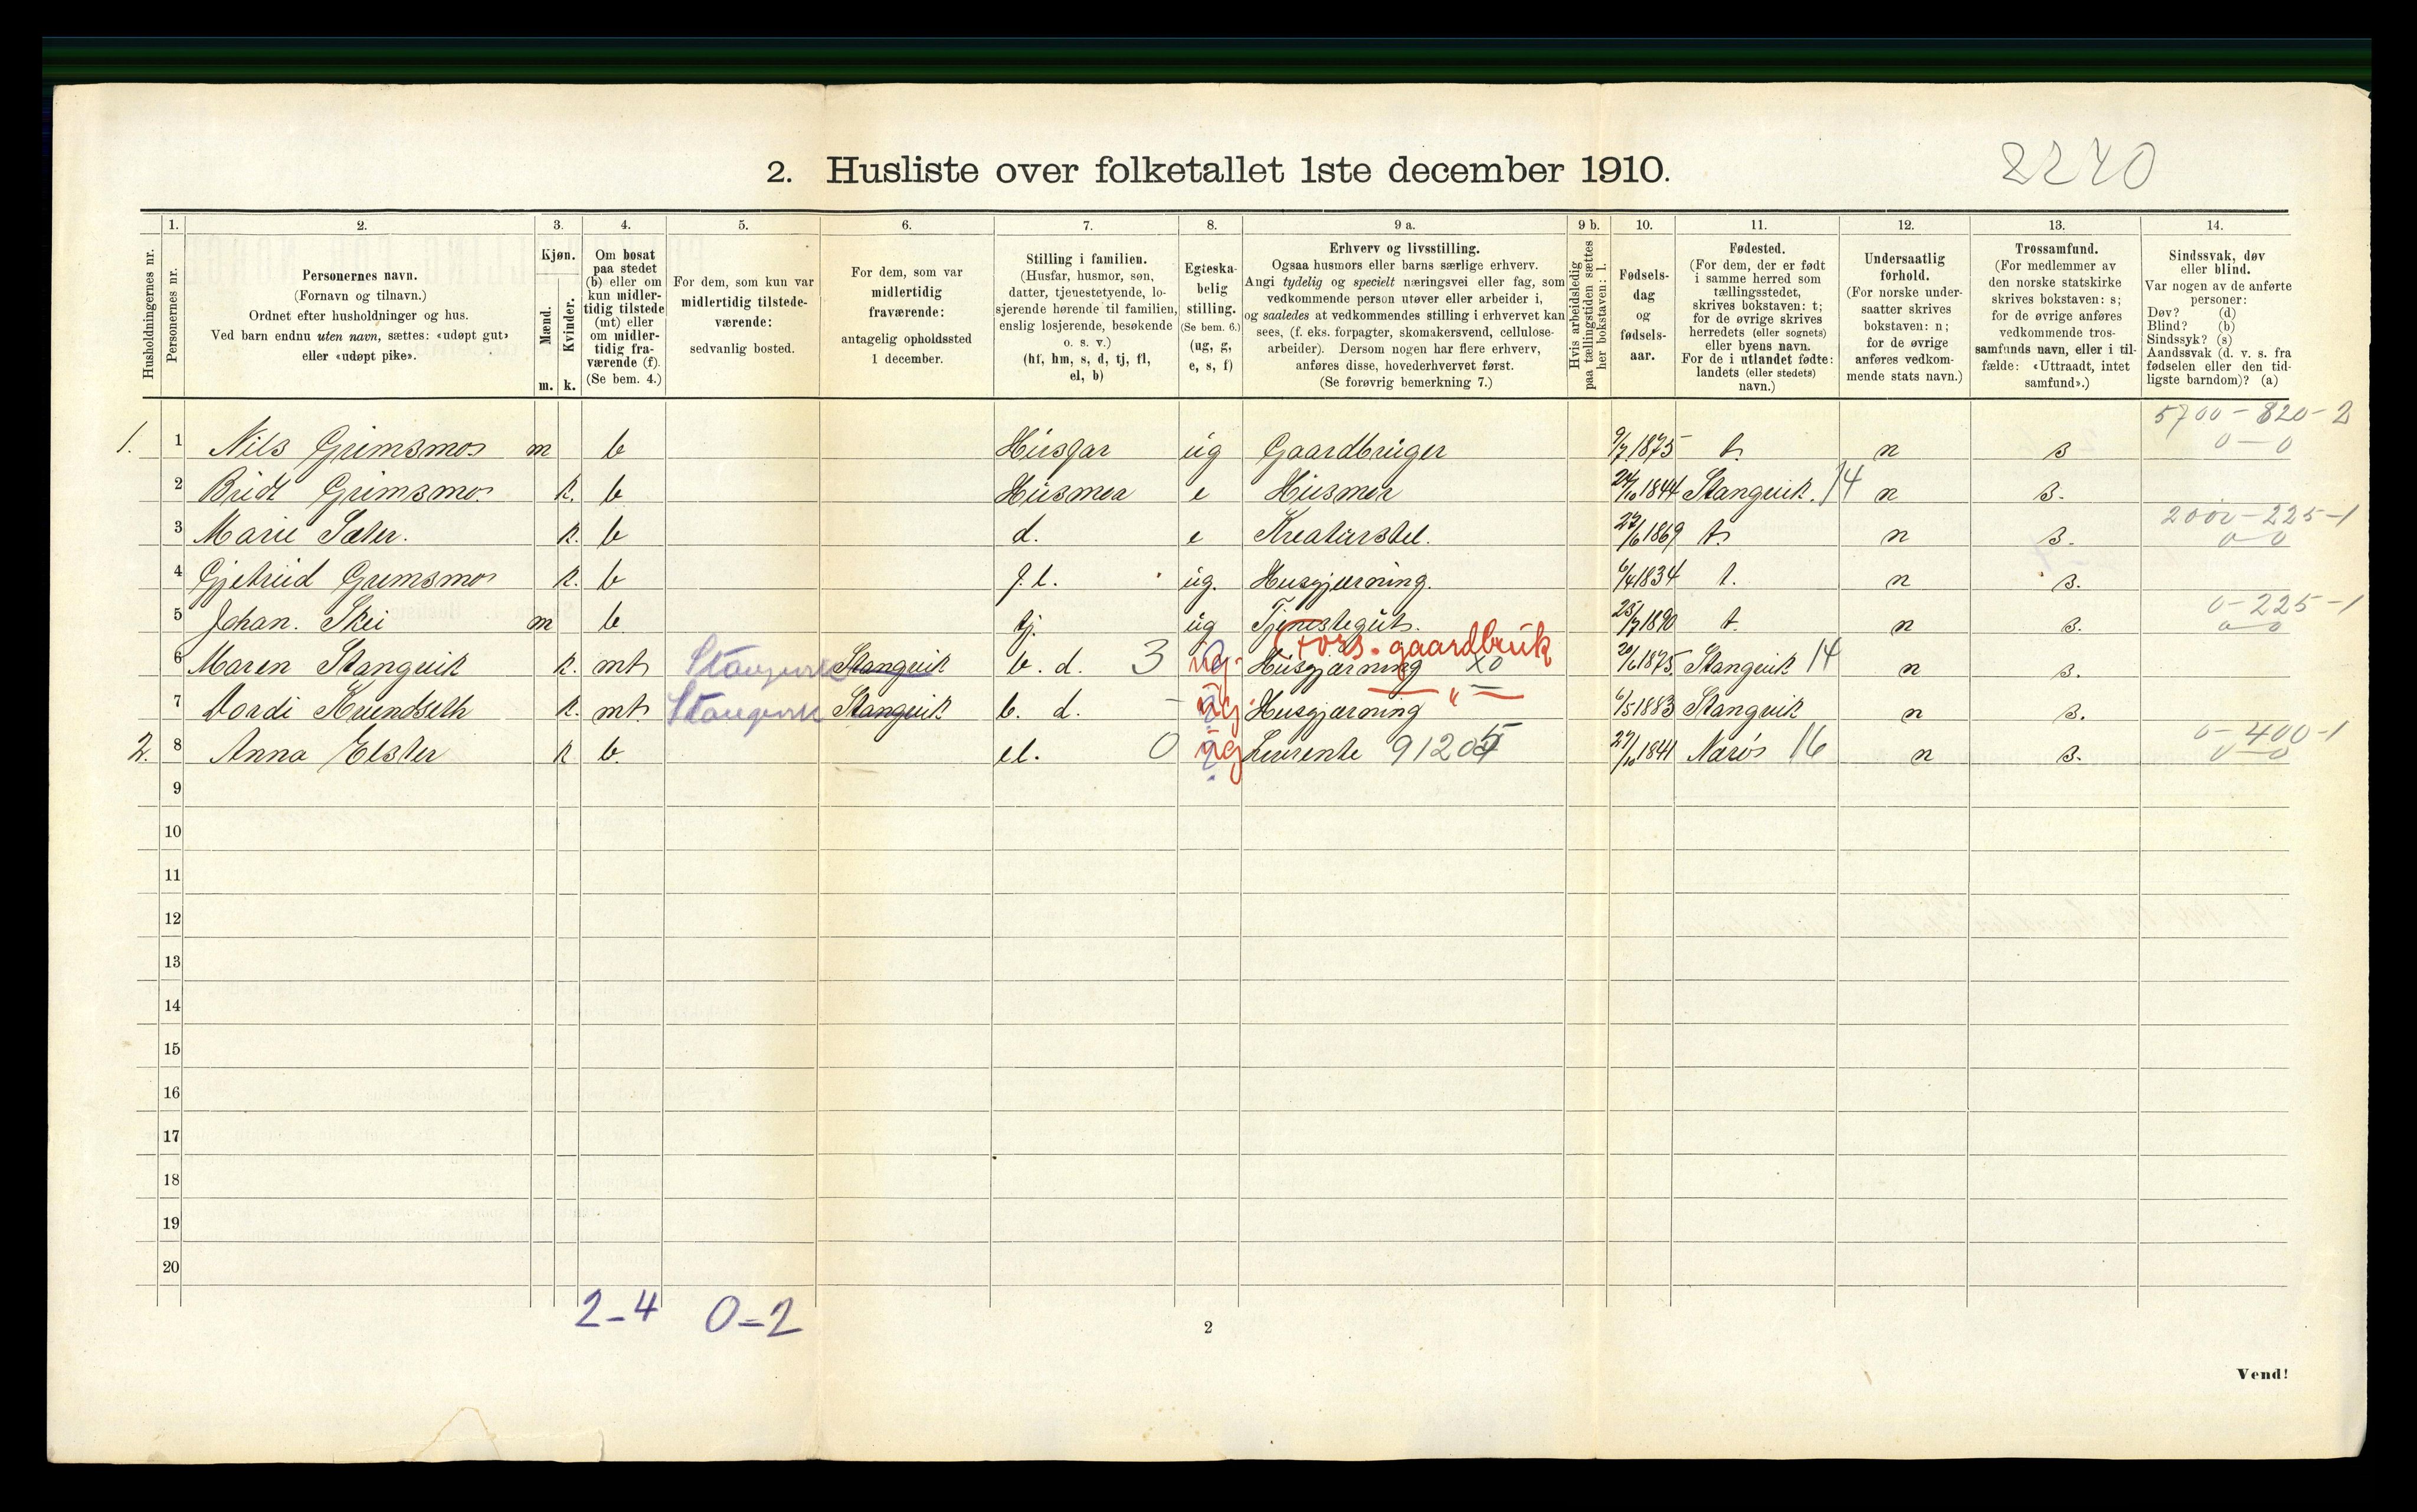 2. Husliste over folketallet 1ste december 1910.
2240
Husholdningernes nr.
1. Personernes nr.
2. Personernes navn.
(Fornavn og tilnavn.)
Ordnet efter husholdninger og hus.
Ved barn endnu uten navn, sættes: «udøpt gut»
eller «udøpt pike».
3. Kjøn.
Mænd. m.
Kvinder. k.
4. Om bosat
paa stedet
(b) eller om
kun midler-
tidig tilstede
(mt) eller
om midler-
tidig fra-
værende (f).
(Se bem. 4.)
5. For dem, som kun var
midlertidig tilstede-
værende:
sedvanlig bosted.
6. For dem, som var
midlertidig
fraværende:
antagelig opholdssted
1 december.
7. Stilling i familien.
(Husfar, husmor, søn,
datter, tjenestetyende, lo-
sjerende hørende til familien,
enslig losjerende, besøkende
o. s. v.)
(hf, hm, s, d, tj, fl,
el, b)
8. Egteska-
belig
stilling.
(Se bem. 6.)
(ug, g,
e, s, f)
9 a. Erhverv og livsstilling.
Ogsaa husmors eller barns særlige erhverv.
Angi tydelig og specielt næringsvei eller fag, som
vedkommende person utøver eller arbeider i,
og saaledes at vedkommendes stilling i erhvervet kan
sees, (f. eks. forpagter, skomakersvend, cellulose-
arbeider). Dersom nogen har flere erhverv,
anføres disse, hovederhvervet først.
(Se forøvrig bemerkning 7.)
9 b. Hvis arbeidsledig
paa tællingstiden sættes
her bokstaven: l.
10. Fødsels-
dag
og
fødsels-
aar.
11. Fødested.
(For dem, der er født
i samme herred som
tællingsstedet,
skrives bokstaven: t;
for de øvrige skrives
herredets (eller sognets)
eller byens navn.
For de i utlandet fødte:
landets (eller stedets)
navn.)
12. Undersaatlig
forhold.
(For norske under-
saatter skrives
bokstaven: n;
for de øvrige
anføres vedkom-
mende stats navn.)
13. Trossamfund.
(For medlemmer av
den norske statskirke
skrives bokstaven: s;
for de øvrige anføres
vedkommende tros-
samfunds navn, eller i til-
fælde: «Uttraadt, intet
samfund».)
14. Sindssvak, døv
eller blind.
Var nogen av de anførte
personer:
Døv? (d)
Blind? (b)
Sindssyk? (s)
Aandssvak (d. v. s. fra
fødselen eller den tid-
ligste barndom)? (a)
5700-820-2
1. 1 Nils Grimsmo m b Husfar ug Gaardbruger 9/7 1875 t. n s 0-0
2 Bridt Grimsmo k. b Husmor e Husmor 24/10 1844 Stangvik. 14 n s.
2000-225-1
3 Marie Sæter. k. b d. e Kreaturstel. 27/6 1869 t. n s. 0-0
4 Gjetrud Grimsmo k. b f.l. ug. Husgjærning. 6/4 1834 t. n s.
0-225-1
5 Johan. Skei m b tj. ug Tjenestegut. 25/7 1890 t. n s. 0-0
Fors. gaardbruk
6 Maren Stangvik k. mt Stangvik Stangvik b. d. 3 ug. Husgjærning x0 20/6 1875. Stangvik 14 n s.
7 Dordi Kvendseth k. mt. Stangvik Stangvik b. d. - ug. Husgjærning " 6/5 1883 Stangvik n s.
0-400-1
2. 8 Anna Elster k b. el. 0 ug Livrente 91205 27/10 1841 Nærøs 16 n s. 0-0
9
10
11
12
13
14
15
16
17
18
19
20
2-4 0-2
2
Vend!